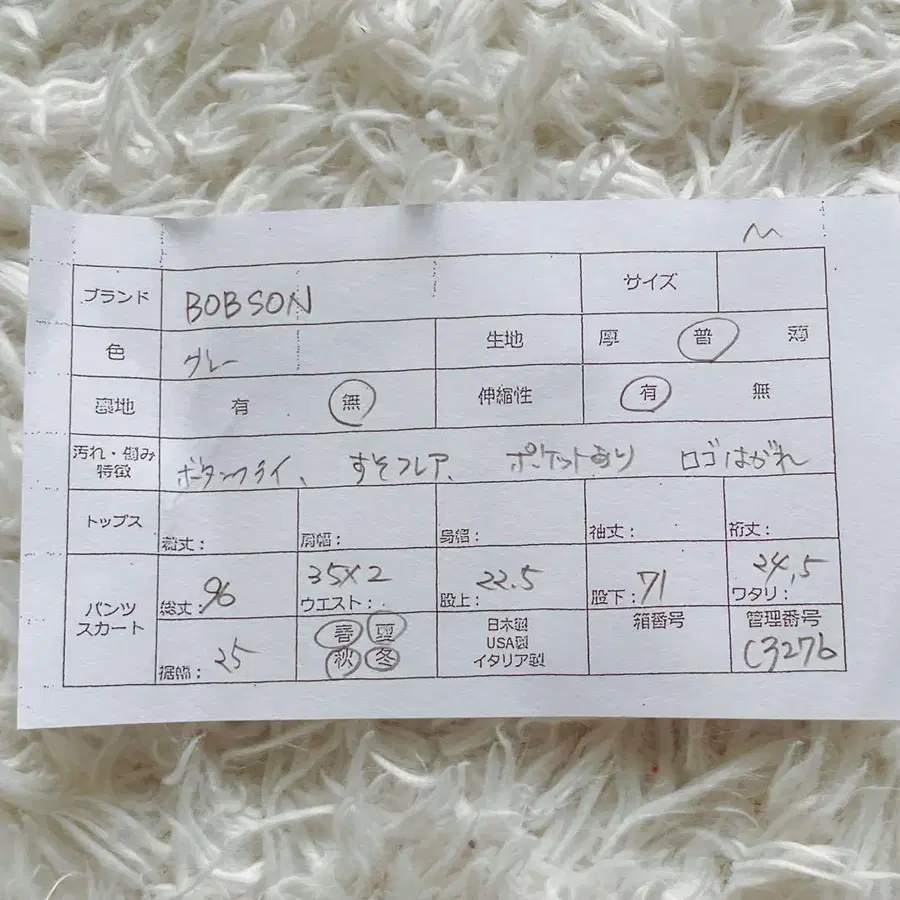 M
ブランド BOBSON サイズ
色 グレー 生地 厚 普 薄
裏地 有 無 伸縮性 有 無
汚れ・傷み
特徴 ボタンフライ、すそフレア、ポケットあり ロゴはがれ
トップス 着丈: 肩幅: 身幅: 袖丈: 裄丈:
パンツ
スカート 総丈:96 ウエスト:35×2 股上:22.5 股下:71 ワタリ:24.5
裾幅:25 春 夏 秋 冬 日本製 USA製 イタリア製 箱番号 管理番号 C3276